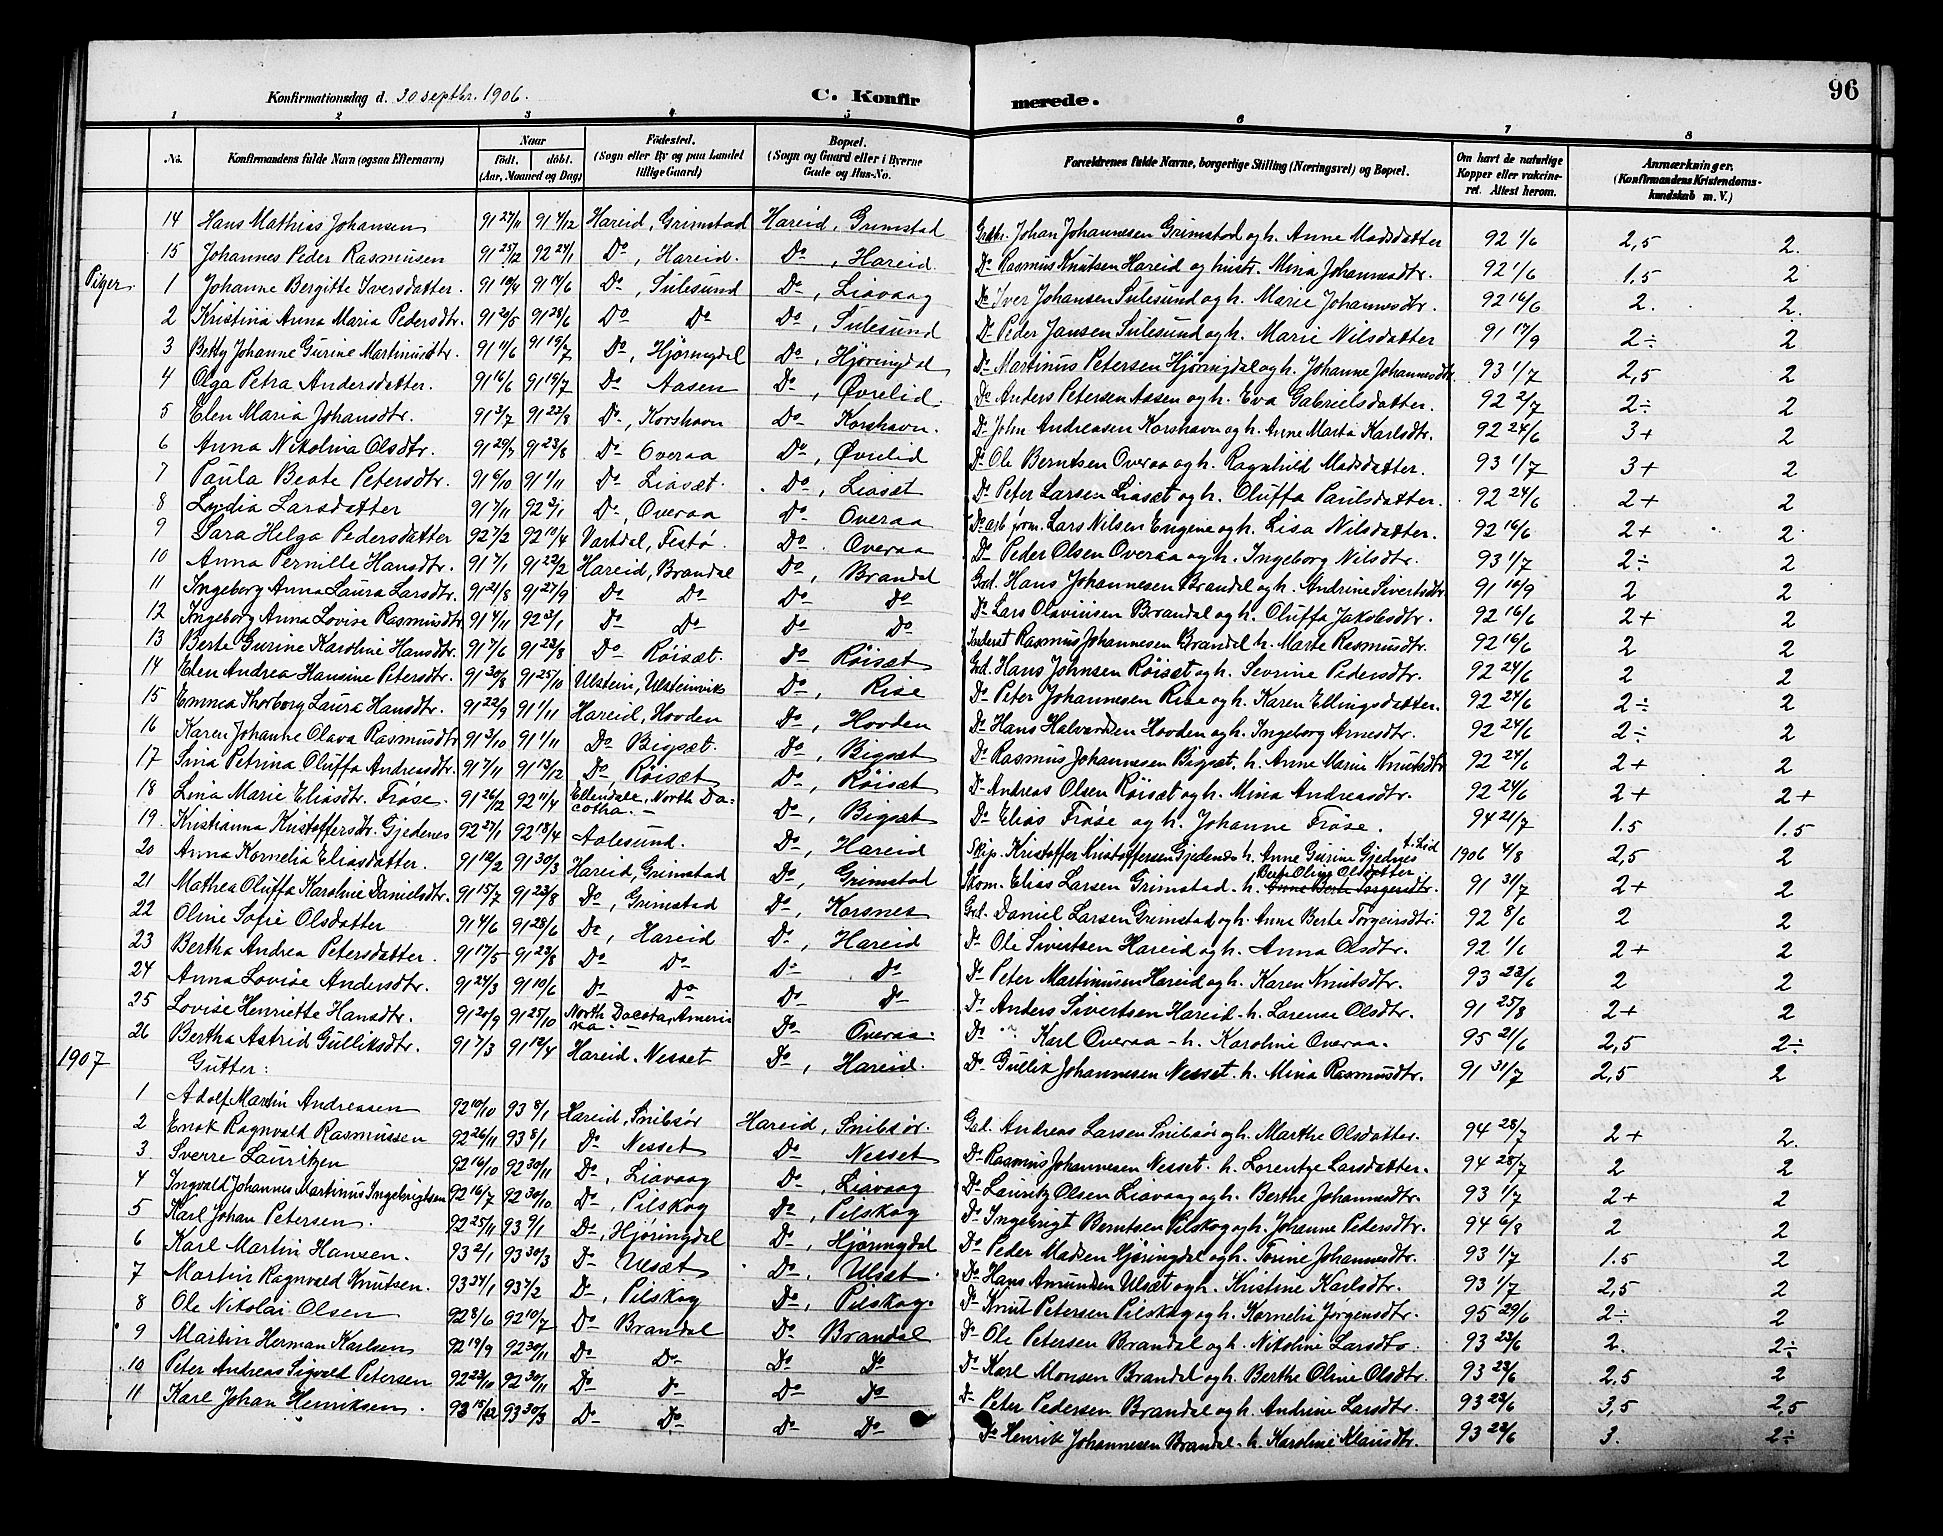 Konfirmationsdag d. 30 septbr. 1906. C. Konfirmerede. 96
1 2 3 4 5 6 7 8
No. Konfirmandens fulde Navn (ogsaa Efternavn) Naar født. døbt. (Aar, Maaned og Dag) Fødested. (Sogn eller By og paa Landet tillige Gaard) Bopæl. (Sogn og Gaard eller i Byerne Gade og Hus-No. Forældrenes fulde Navne, borgerlige Stilling (Næringsvei) og Bopæl. Om havt de naturlige Kopper eller vaccineret. Attest herom. Anmærkninger. (Konfirmandens Kristendomskundskab m. V.)
14 Hans Mathias Johansen 91 27/11 91 4/12 Hareid, Grimstad Hareid, Grimstad Grdbr. Johan Johannesen Grimstad og h. Anne Madsdatter 92 1/6 2,5 2.
15 Johannes Peder Rasmusen 91 25/12 92 24/1 Do, Hareid. Do, Hareid Do Rasmus Knutsen Hareid og hustr. Mina Johannesdtr. 92 1/6 1.5 2
Piger. 1 Johanne Bergitte Iversdatter. 91 10/4 91 14/6 Do, Sulesund Do, Liavaag Do Iver Johansen Sulesund og h. Marie Johannesdtr. 92 16/6 2. 2.
2 Kristina Anna Maria Pedersdtr. 91 20/5 91 28/6 Do Do Do, Sulesund Do Peder Jansen Sulesund og h. Marie Nilsdatter 91 17/9 2÷ 2
3 Betty Johanne Gurine Martinusdtr. 91 11/6 91 19/7 Do, Hjøringdal Do, Hjøringdal Do Martinus Petersen Hjøringdal og h. Johanne Johannesdtr 93 1/7 2,5 2
4 Olga Petra Andersdatter. 91 16/6 91 19/7 Do Aasen Do, Øvrelid. Do Anders Petersen Aasen og h. Eva Gabrielsdatter. 92 2/7 2÷ 2
5 Elen Maria Johansdtr. 91 3/7 91 22/8 Do, Korshavn Do Korshavn. Do John Andreasen Korshavn og h. Anne Marta Karlsdtr. 92 24/6 3+ 2
6 Anna Nikolina Olsdtr. 91 29/7 91 23/8 Do Overaa Do, Øvrelid Do Ole Berntsen Overaa og h. Ragnhild Madsdatter. 93 1/7 3+ 2
7 Paula Beate Petersdtr. 91 6/10 91 1/11 Do Liasæt. Do, Liasæt Do Peter Larsen Liasæt og h. Oluffa Paulsdatter. 92 24/6 2+ 2
8 Lydia Larsdatter 91 7/11 92 3/1 Do, Overaa Do Overaa Do arb. form. Lars Nilsen Engene og h. Lisa Nilsdatter. 92 16/6 2+ 2
9 Sara Helga Pedersdatter 92 7/2 92 10/4 Vartdal, Festø. Do. Overaa Do Peder Olsen Overaa og h. Ingeborg Nilsdtr. 93 1/7 2÷ 2
10 Anna Pernille Hansdtr. 91 7/1 91 22/2 Hareid, Brandal Do, Brandal Grd. Hans Johannesen Brandal og h. Andrine Sivertsdtr 91 16/9 2 2
11 Ingeborg Anna Laura Larsdtr. 91 21/8 91 27/9 Do Do Do Do Do Lars Olavinsen Brandal og h. Oluffa Jakobsdtr. 92 16/6 2+ 2
12 Ingeborg Anna Lovise Rasmusdtr 91 4/11 92 3/1 Do Do Do Do Inderst Rasmus Johannesen Brandal h. Marte Rasmusdtr. 92 16/6 2 2
13 Berte Gurine Karoline Hansdtr. 91 7/6 91 23/8 Do Röisæt. Do Röisæt Grd. Hans Johnsen Röisæt og h. Sevrine Pedersdtr. 92 24/6 2 2
14 Elen Andrea Hansine Petersdtr. 91 30/8 91 25/10 Ulstein, Ulsteinvik Do, Rise Do Peter Johannesen Rise og h. Karen Ellingsdatter. 92 24/6 2÷ 2
15 Emmea Thorborg Laura Hansdtr. 91 22/9 91 1/11 Hareid, Hovden Do, Hovden Do Hans Halvardsen Hovden og h. Ingeborg Arnesdtr. 92 24/6 2÷ 2
16 Karen Johanne Olava Rasmusdtr 91 3/10 91 1/11 Do Bigsæt. Do, Bigsæt Do Rasmus Johannesen Bigsæt. h. Anne Marie Knutsdtr 92 24/6 2+ 2
17 Sina Petrina Oluffa Andreasdtr. 91 7/11 91 13/12 Do Röisæt Do, Röisæt Do Andreas Olsen Röisæt og h. Mina Andreasdtr. 92 24/6 2+ 2+
18 Lina Marie Eliasdtr. Frøse. 91 26/12 92 11/4 Ellendale, North Dacotha. Do, Bigsæt Do Elias Frøse og h. Johanne Frøse. 94 21/7 1.5 1.5
19 Kristianna Kristoffersdtr. Gjedenes 92 27/1 92 18/4 Aalesund. Do, Hareid Skip. Kristoffer Kristoffersen Gjedenes h. Anne Gurine Gjednes 1906 4/8 2,5 2
20 Anna Kornelia Eliasdatter. 91 12/2 91 30/3 Hareid, Grimstad Do, Grimstad Skom. Elias Larsen Grimstad. h. Berte Oline Olsdatter 91 31/7 2+ 2
21 Mathea Oluffa Karoline Danielsdtr. 91 15/7 91 23/8 Do, Grimstad Do, Korsnes Grd. Daniel Larsen Grimstad og h. Anna Berte Torgeirsdtr. 92 8/6 2 2
22 Oline Sofie Olsdatter 91 4/6 91 28/6 Do, Hareid Do, Hareid Do Ole Sivertsen Hareid og h. Anna Olsdtr. 92 1/6 2+ 2
23 Bertha Andrea Petersdatter. 91 17/5 91 23/8 Do Do Do Do Do Peter Martinusen Hareid og h. Karen Knutsdtr. 93 23/6 2 2
24 Anna Lovise Andersdtr. 91 24/3 91 10/6 Do Do Do Do Do Anders Sivertsen Hareid. h. Larense Olsdtr. 91 25/8 2+ 2
25 Lovise Henriette Hansdtr. 91 20/9 91 25/10 North Dacota, Amerika. Do Overaa. Do Karl Overaa - h. Karoline Overaa. 95 21/6 2,5 2÷
26 Bertha Astrid Gulliksdtr. 91 7/3 91 12/4 Hareid. Nesset Do, Hareid. Do Gullik Johannesen Nesset. h. Mina Rasmusdtr. 91 31/7 2,5 2
1907 Gutter:
1 Adolf Martin Andreasen 92 10/10 93 8/1 Hareid, Snibsør Hareid, Snibsør. Grd. Andreas Larsen Snibsør og h. Marthe Olsdatter. 94 28/7 2+ 2.
2 Enok Ragnvald Rasmussen 92 26/11 93 8/1 Do Nesset Do Nesset Do Rasmus Johannesen Nesset. h. Lorentze Larsdatter. 94 28/7 2 2
3 Sverre Lauritzen 92 16/10 92 30/11 Do, Liavaag Do, Liavaag Do Lauritz Olsen Liavaag og h. Berthe Johannesdtr. 93 1/7 2+ 2
4 Ingvald Johannes Martinus Ingebrigtsen 92 16/7 92 30/10 Do, Pilskog Do, Pilskog Do Ingebrigt Berntsen Pilskog og h. Johanne Pedersdtr. 94 6/8 2 2
5 Karl Johan Petersen. 92 25/11 93 9/1 Do, Hjøringdal Do, Hjøringdal Do Peder Madsen Hjøringdal og h. Torine Johannesdtr. 93 1/7 1.5 2
6 Karl Martin Hansen. 93 2/1 93 30/3 Do Ulsæt Do, Ulsæt. Do Hans Amundsen Ulsæt og h. Kristine Karlsdtr. 93 1/7 2,5 2
7 Martin Ragnvald Knutsen. 93 24/1 93 7/2 Do, Pilskog Do, Pilskog. Do Knut Petersen Pilskog og h. Kornelia Jorgensdtr. 95 29/6 2÷ 2
8 Ole Nikolai Olsen 92 8/6 92 10/7 Do Brandal Do Brandal Do Ole Petersen Brandal og h. Nikoline Larsdtr. 93 23/6 2. 2÷
9 Martin Herman Karlsen 92 19/9 92 30/11 Do Do Do Do Do Karl Monsen Brandal og h. Berthe Oline Olsdtr. 93 23/6 2,5 2
10 Peter Andreas Sigvald Petersen 92 23/10 92 30/11 Do Do Do Do Do Peter Pedersen Brandal og h. Andrine Larsdtr. 93 23/6 3,5 2,5
11 Karl Johan Henriksen. 93 15/12 93 30/3 Do Do Do Do Do Henrik Johannesen Brandal. h. Karoline Klausdtr. 93 23/6 3. 2÷